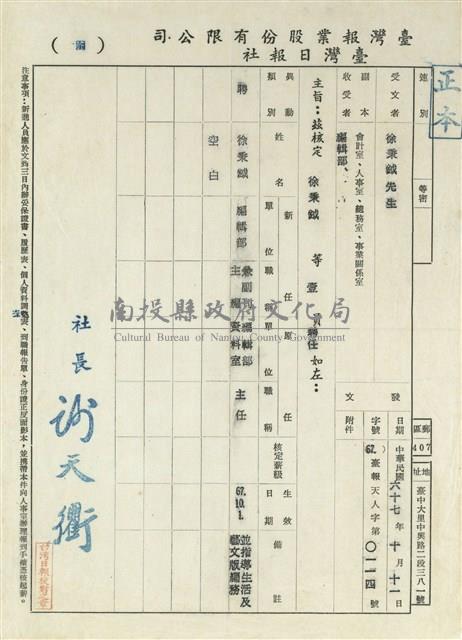 臺灣報業股份有限公司
臺灣日報社
(函)
正本
速別
密等
受文者
徐秉鉞先生
副本收受者
會計室、人事室、總務室、事業關係室
編輯部、
發文
日期
中華民國六十七年十月十一日
字號
67.臺報天人字第〇一一四號
附件
郵區
407
地址
臺中大里中興路二段三八一號
主旨：茲核定 徐秉鉞 等壹員聘任如左：
異動類別
姓名
新任
單位
職稱
原任
單位
職稱
核定薪級
生效日期
備註
聘
徐秉鉞
編輯部
兼副刊主編
編輯部資料室
主任
67.10.1.
並指導生活及藝文版編務
空白
社長
謝天衢
台灣日報校對章
南投縣政府文化局
Cultural Bureau of Nantou County Government
注意事項：新進人員應於文到三日內辦妥保證書、履歷表、個人資料調查表、到職報告單、身份證正反面影本，並携帶本件向人事室辦理報到手續憑核起薪。